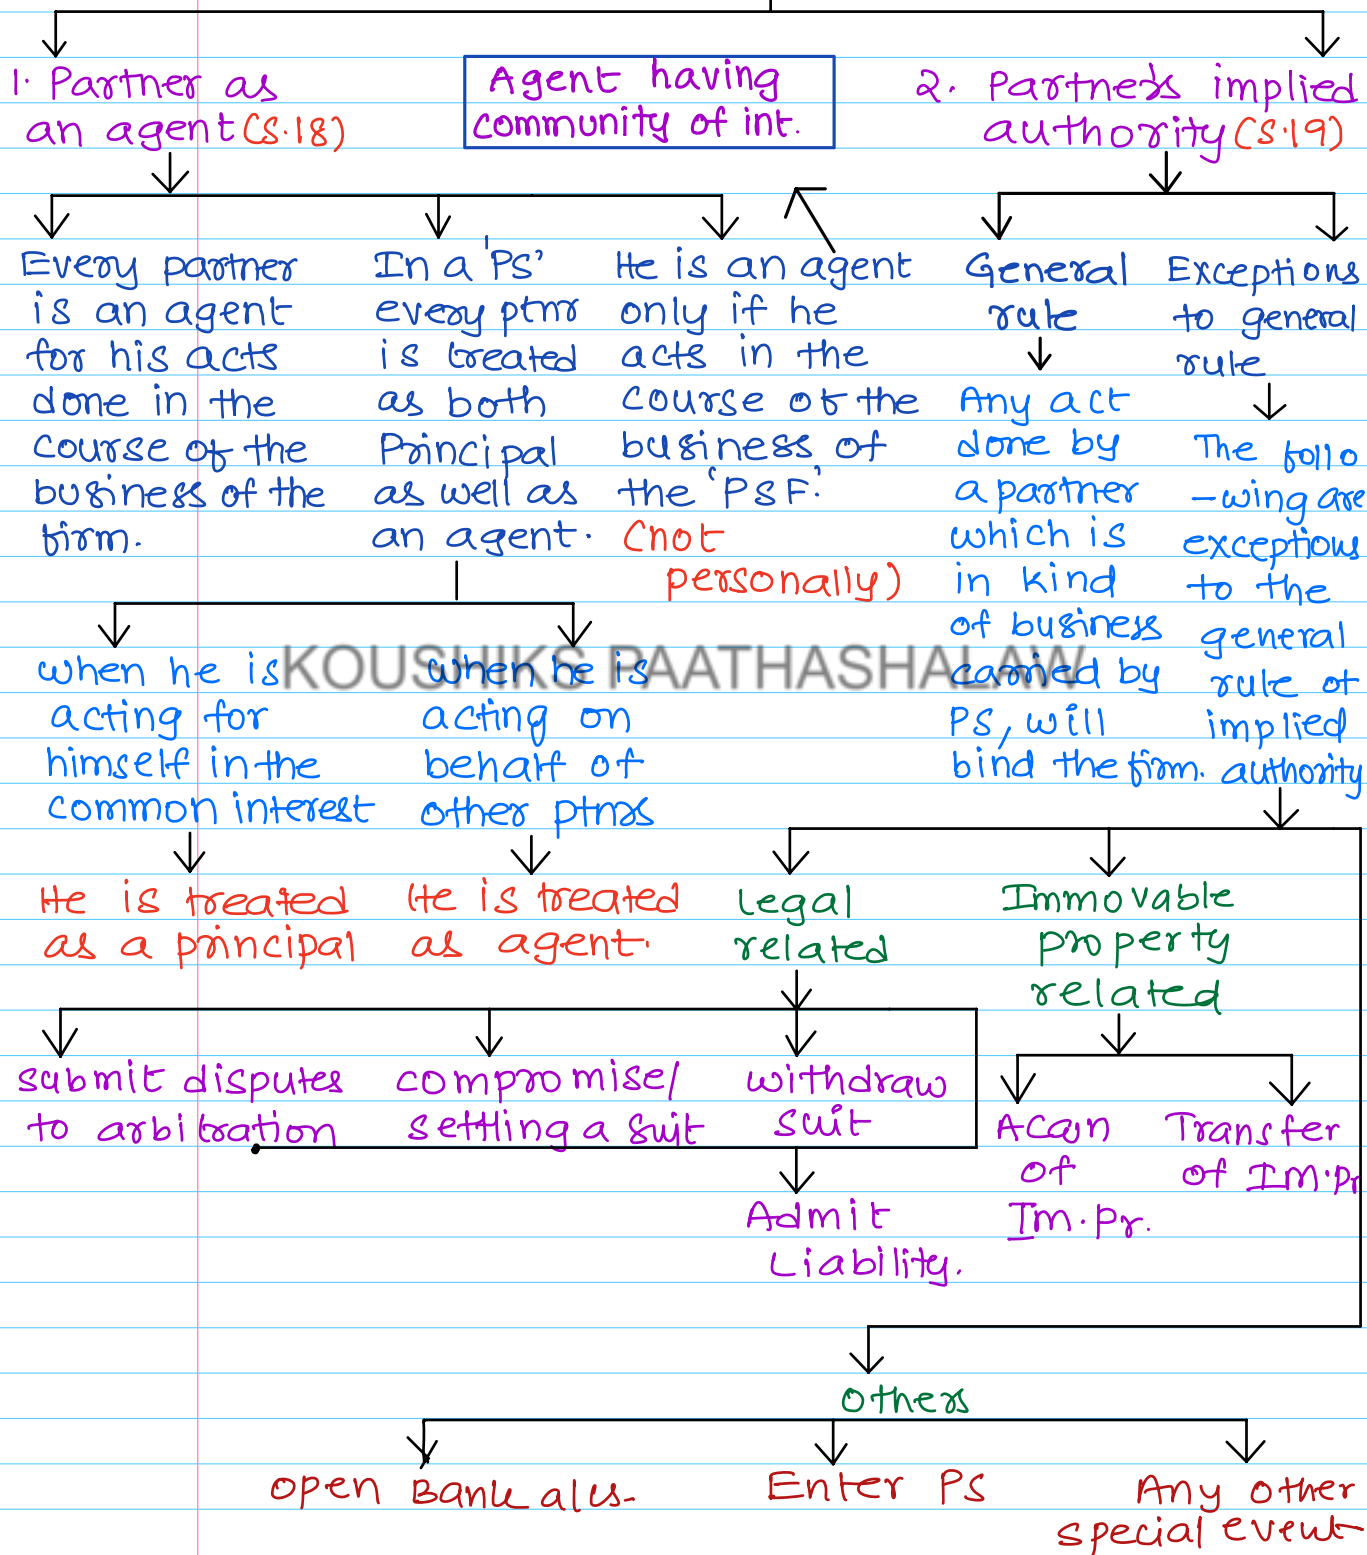 1. Partner as
an agent (S.18)
Agent having
community of int.
2. Partner's implied
authority (S.19)
Every partner
is an agent
for his acts
done in the
course of the
business of the
firm.
In a 'PS'
every ptnr
is treated
as both
Principal
as well as
an agent.
He is an agent
only if he
acts in the
course of the
business of
the 'PSF.'
(not
personally)
General
rule
Any act
done by
a partner
which is
in kind
of business
carried by
PS, will
bind the firm.
Exceptions
to general
rule
The follo
-wing are
exceptions
to the
general
rule of
implied
authority
KOUSHIKS PAATHASHALAW
when he is
acting for
himself in the
common interest
He is treated
as a principal
when he is
acting on
behalf of
other ptnrs
He is treated
as agent.
Legal
related
Immovable
property
related
submit disputes
to arbitration
compromise/
settling a suit
withdraw
suit
Admit
Liability.
of
Im.Pr.
Transfer
of IM.Pr
Others
Open Bank a/cs.
Enter PS
Any other
special event